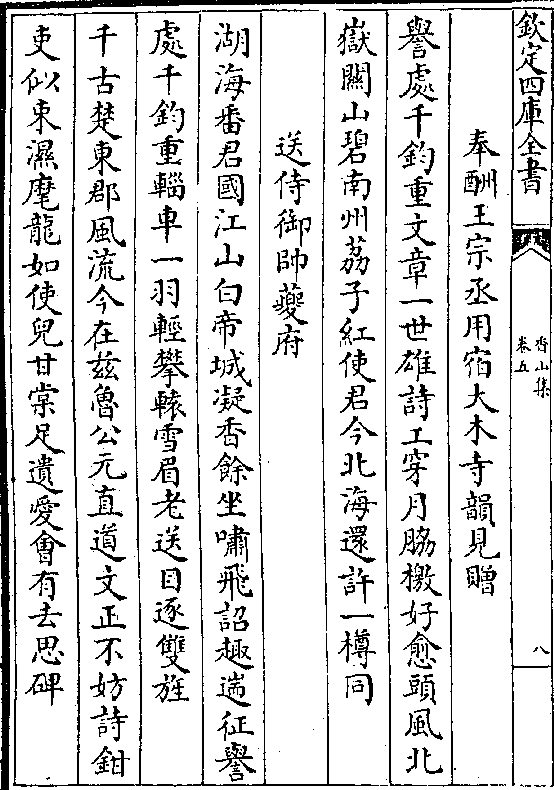 欽定四庫全書
香山集
卷五
八
奉酬王宗丞用宿大木寺韻見贈
譽處千鈞重文章一世雄詩工穿月脇檄好愈頭風北
嶽關山碧南州荔子紅使君今北海還許一樽同
送侍御帥夔府
湖海番君國江山白帝城凝香餘坐嘯飛詔趣遄征譽
處千鈞重輜車一羽輕攀轅雪眉老送目逐雙旌
千古楚東郡風流今在茲魯公元直道文正不妨詩鉗
吏似束濕麾龍如使兒甘棠足遺愛會有去思碑